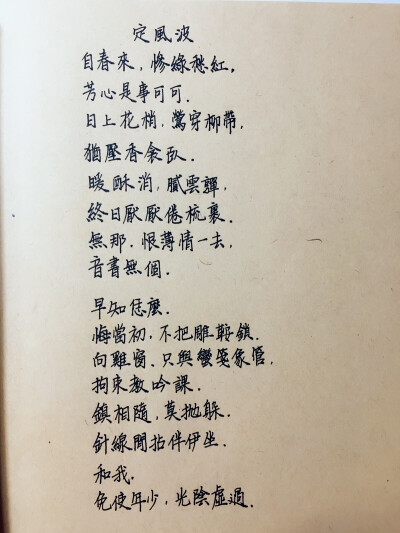 定風波
自春來，慘綠愁紅，
芳心是事可可．
日上花梢，鶯穿柳帶，
猶壓香衾臥．
暖酥消，膩雲嚲，
終日厭厭倦梳裹．
無那．恨薄情一去，
音書無個．
早知恁麼．
悔當初，不把雕鞍鎖．
向雞窗、只與蠻箋象管，
拘束教吟課．
鎮相隨，莫拋躲．
針線閒拈伴伊坐．
和我．
免使年少，光陰虛過．